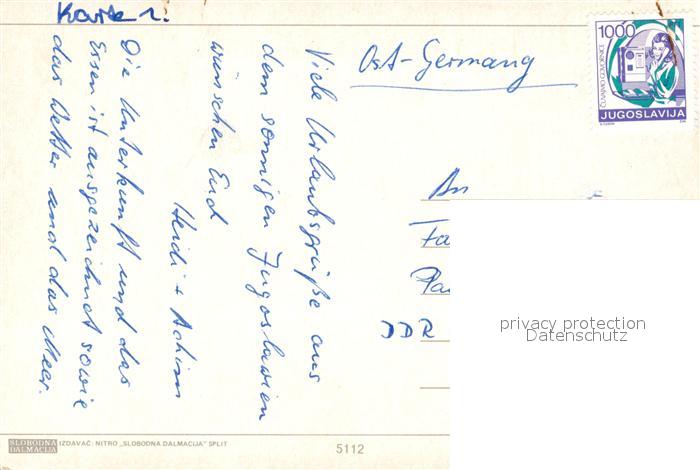 Karte 1.
Viele Urlaubsgrüße aus
dem sonnigen Jugoslawien
wünschen Euch
Heidi + Achim
Die Unterkunft und das
Essen ist ausgezeichnet sowie
das Wetter und das Meer.
Ost-Germany
An
Fa
DDR
1000
ČUVAJMO GOVORNICE
JUGOSLAVIJA
privacy protection
Datenschutz
SLOBODNA
DALMACIJA
IZDAVAČ: NITRO „SLOBODNA DALMACIJA" SPLIT
5112